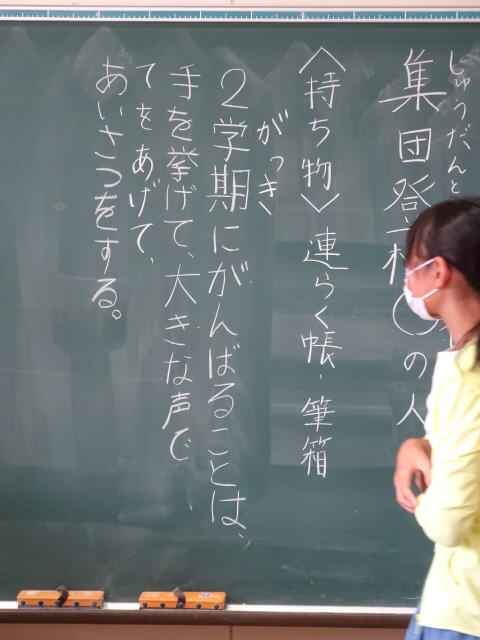 しゅうだんと
集団登校〇の人
〈持ち物〉連らく帳・筆箱
がっき
2学期にがんばることは、
手を挙げて、大きな声で
てをあげて、
あいさつをする。